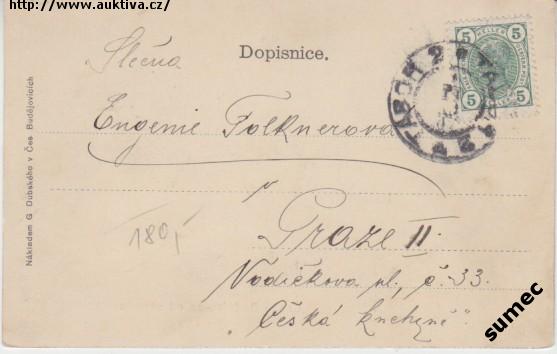 http://www.auktiva.cz/
Slečna
Dopisnice.
5 HELLER 5
5 5
TABOR 2 ✱ TÁBOR 2 ✱
Eugenie Folknerova
v
Praze II.
Vodičkova ul. č. 33.
"Česká kuchyně".
180,-
Nákladem G. Dubského v Čes Budějovicích
sumec